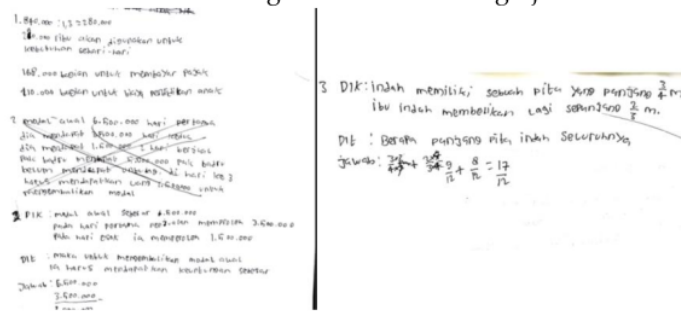 1. 840.000 : 1,3 = 280.000
ribu akan disiapkan untuk
kebutuhan sehari-hari
168.000 bagian untuk membayar pajak
210.000 bagian untuk biaya pendidikan anak
2. modal awal 6.500.000 hari pertama
dia mendapat hari kedua
dia mendapat 1.500.000 2 hari berikut
pak badru mendapat 5.000.000 pak badru
belum mendapat untung. di hari ke 3
harus mendapatkan uang 1.500.000 untuk
mengembalikan modal
2 DIK : modal awal sebesar 6.500.000
pada hari pertama memperoleh 3.500.000
pada hari esok ia memperoleh 1.500.000
Dit : maka untuk mengembalikan modal awal
ia harus mendapatkan keuntungan sebesar
Jawab : 6.500.000
3.500.000
3 DIK : Indah memiliki sebuah pita yang panjang 3/4 m
ibu indah membelikan lagi sepanjang 2/3 m.
Dit : Berapa panjang pita indah seluruhnya
Jawab : 9/12 + 8/12 = 17/12